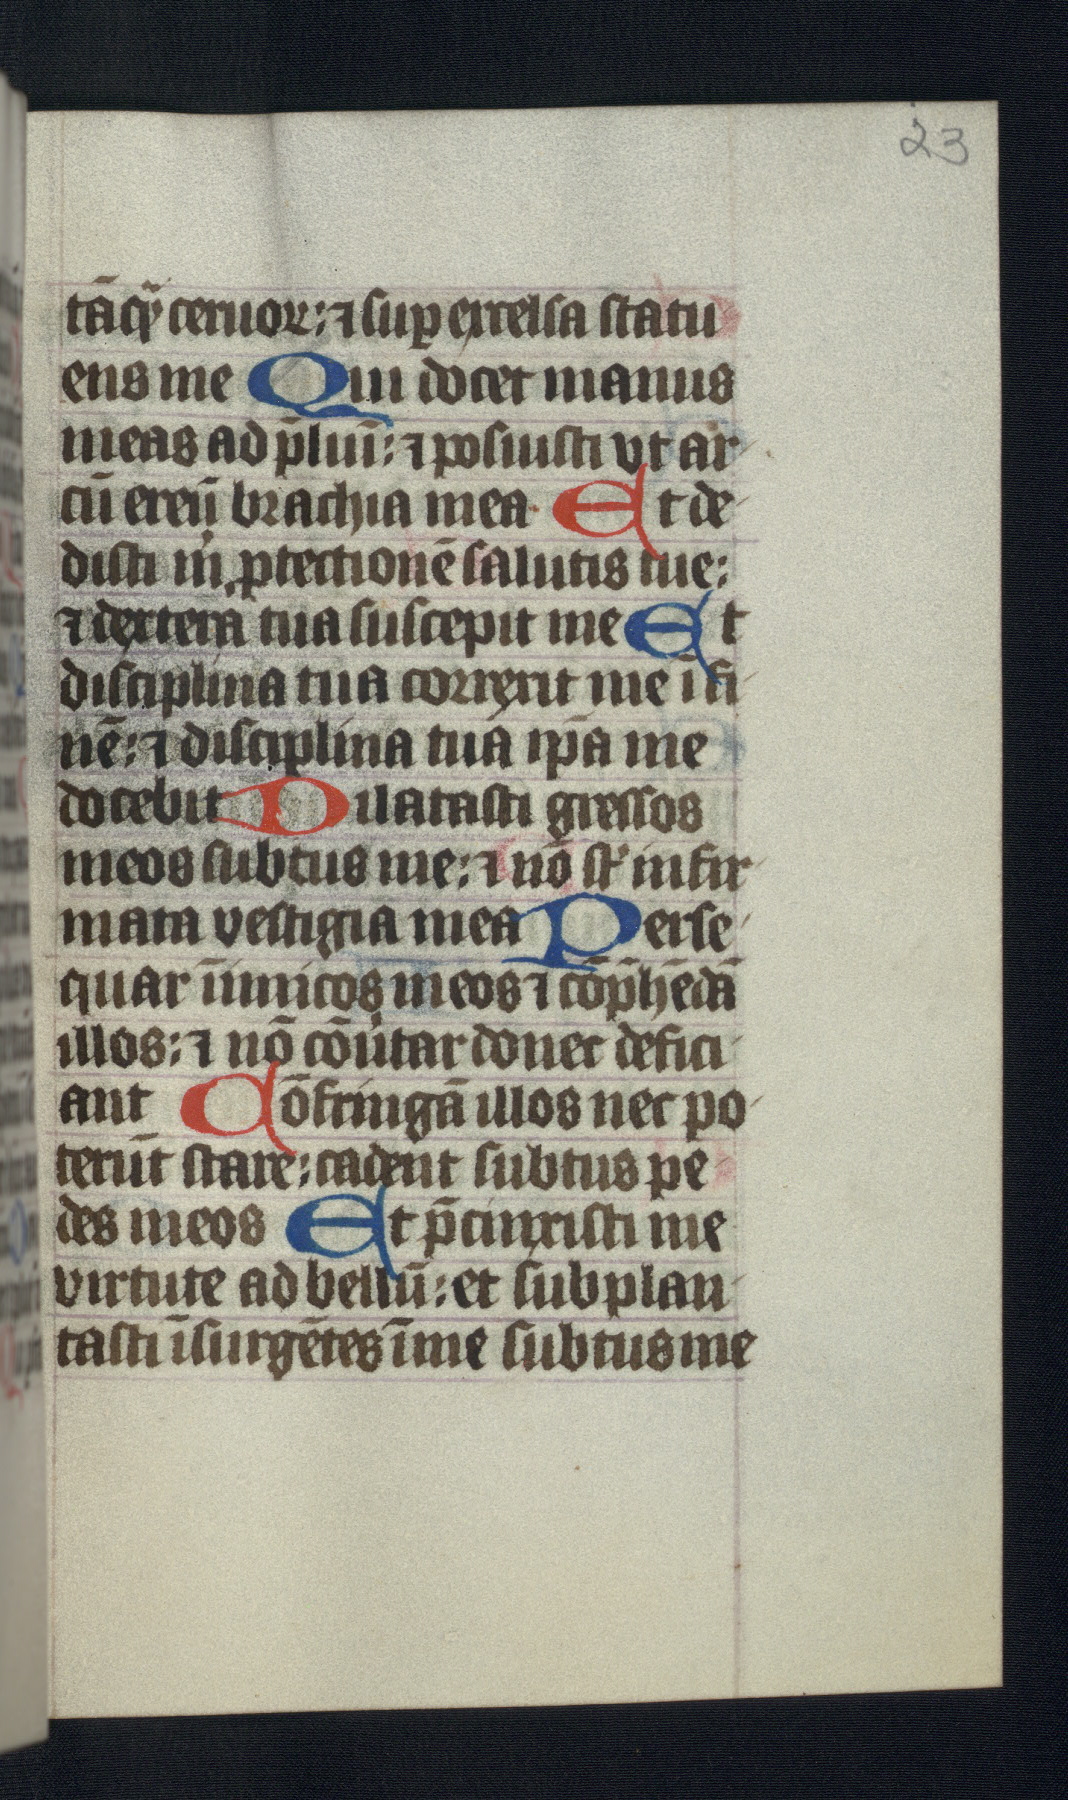 23
tāqꝫ ceruoꝝ: ⁊ suꝑ excelsa statu
ens me Qui docet manus
meas ad p̄liū: ⁊ posuisti vt ar
cū ereū brachia mea Et de
disti m̓ ꝓtectionē salutis tue:
⁊ dextera tua suscepit me Et
disciplina tua correxit me ī fi
nē: ⁊ disciplina tua ip̄a me
docebit Dilatasti gressos
meos subtus me: ⁊ nō st̓ infir
mata vestigia mea Perse
quar īimicos meos ⁊ cōp̄hēdā
illos: ⁊ nō cōu̓tar donec defici
ant Cōfringā illos nec po
terūt stare: cadent subtus pe
des meos Et p̄cinxisti me
virtute ad bellū: et subplan
tasti īsurgētes ī me subtus me